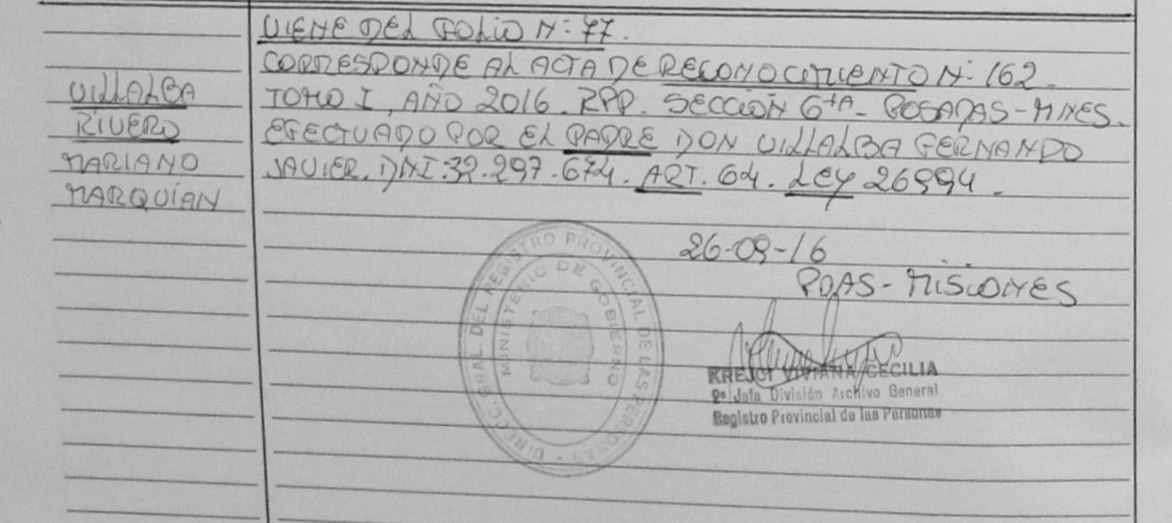 VIENE DEL FOLIO N: 77.
CORRESPONDE AL ACTA DE RECONOCIMIENTO N: 162.
TOMO I, AÑO 2016. RPP. SECCIÓN 6tA - POSADAS - MNES.
EFECTUADO POR EL PADRE DON VILLALBA FERNANDO
JAVIER. DNI: 32.297.674. ART. 64. LEY 26994.
VILLALBA
RIVERO
MARIANO
MARQUIAN
26-09-16
PDAS - MISIONES
DIRECC. GRAL. DEL REGISTRO PROVINCIAL DE LAS PERSONAS
MINISTERIO DE GOBIERNO
KREJCI VIVIANA CECILIA
2ª Jefa División Archivo General
Registro Provincial de las Personas